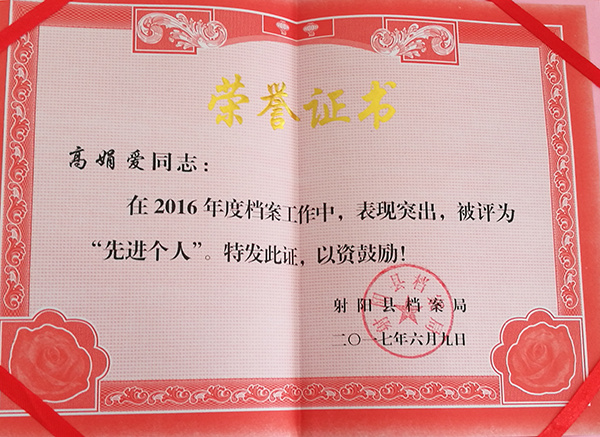 荣誉证书
高娟爱同志：
在2016年度档案工作中，表现突出，被评为
“先进个人”。特发此证，以资鼓励！
射阳县档案局
射阳县档案局
二〇一七年六月九日